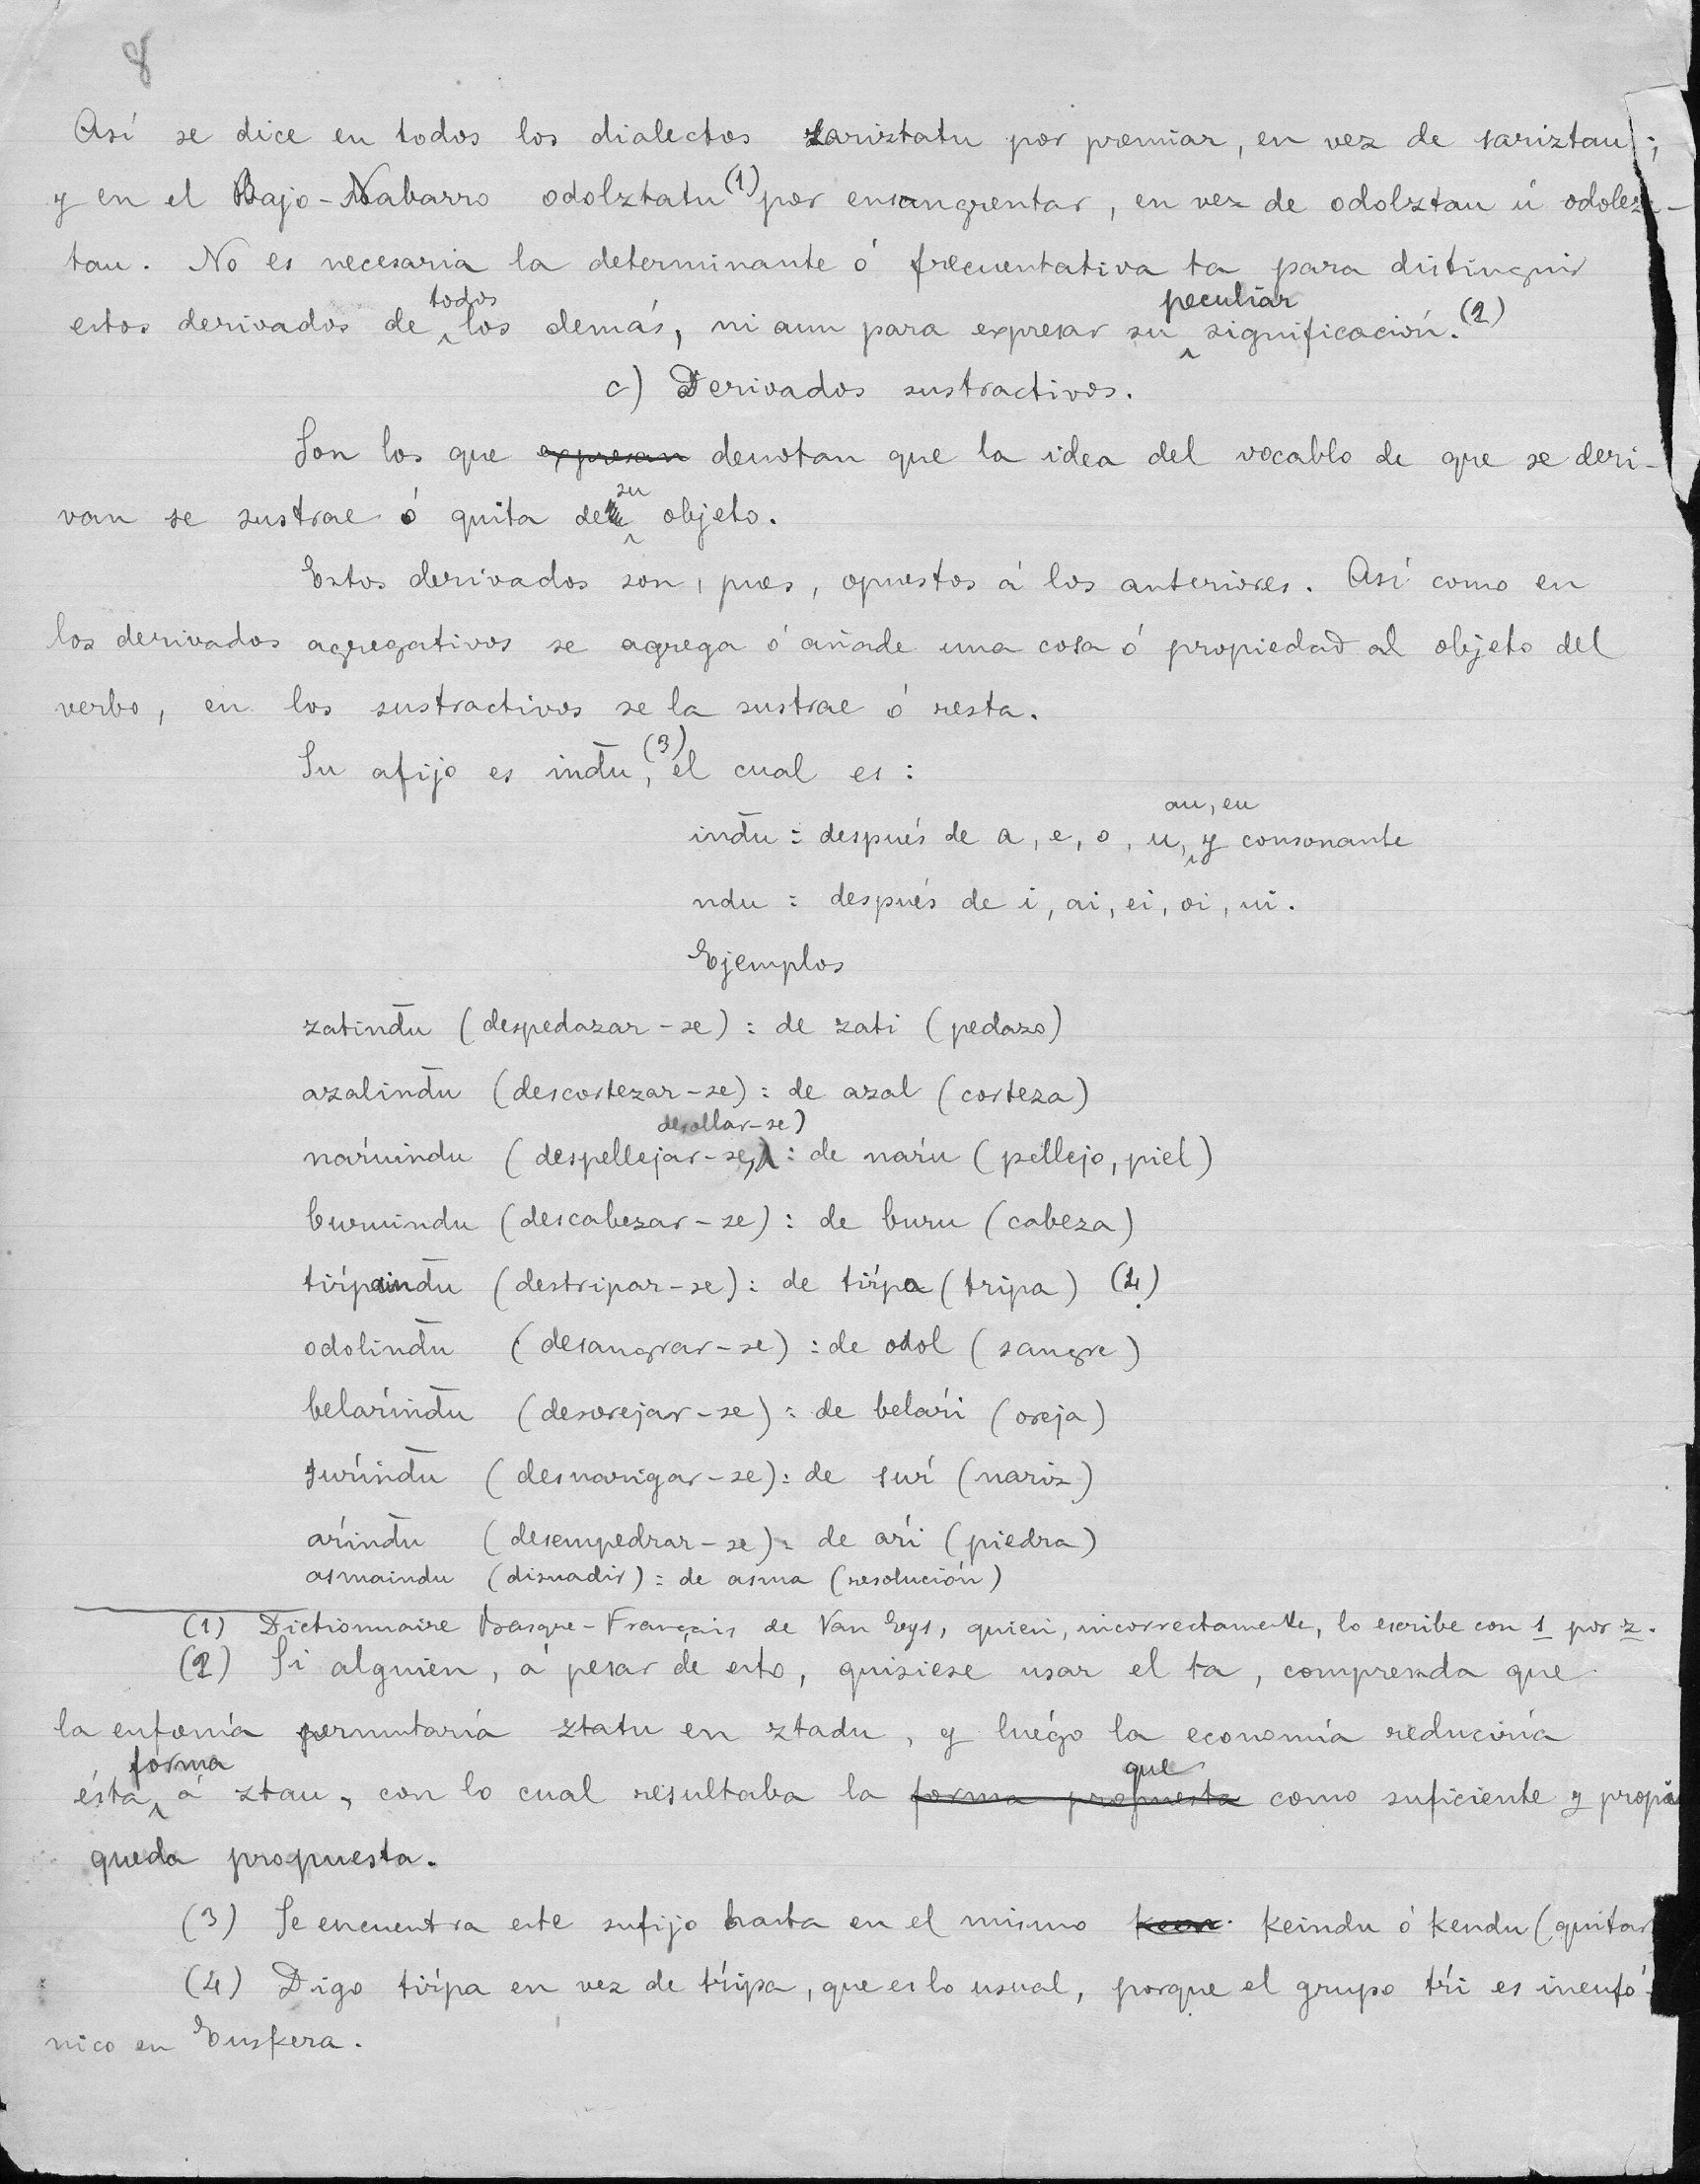 8
Así se dice en todos los dialectos sariztatu por premiar, en vez de sariztau;
y en el Bajo-Nabarro odolztatu (1) por ensangrentar, en vez de odolztau ú odolez-
tau. No es necesaria la determinante ó frecuentativa ta para distinguir
estos derivados de todos los demás, ni aun para expresar su peculiar significación. (2)
c) Derivados sustractivos.
Son los que expresan denotan que la idea del vocablo de que se deri-
van se sustrae ó quita de su objeto.
Estos derivados son, pues, opuestos á los anteriores. Así como en
los derivados agregativos se agrega ó añade una cosa ó propiedad al objeto del
verbo, en los sustractivos se la sustrae ó resta.
Su afijo es ind̄u, (3) el cual es:
ind̄u : después de a, e, o, u, au, eu y consonante
ndu : después de i, ai, ei, oi, ui.
Ejemplos
zatind̄u (despedazar-se) : de zati (pedazo)
azalind̄u (descortezar-se) : de azal (corteza)
naŕuindu (despellejar-se, desollar-se) : de naŕu (pellejo, piel)
buruindu (descabezar-se) : de buru (cabeza)
tiŕpaind̄u (destripar-se) : de tiŕpa (tripa) (4)
odolind̄u (desangrar-se) : de odol (sangre)
belaŕind̄u (desorejar-se) : de belaŕi (oreja)
suŕind̄u (desnarigar-se) : de suŕ (nariz)
aŕind̄u (desempedrar-se) : de aŕi (piedra)
asmaindu (disuadir) : de asma (resolución)
(1) Dictionnaire Basque-Français de Van Eys, quien, incorrectamente, lo escribe con s por z.
(2) Si alguien, á pesar de esto, quisiese usar el ta, comprenda que
la eufonía permutaría ztatu en ztadu, y luégo la economía reduciría
ésta forma á ztau, con lo cual resultaba la forma propuesta que como suficiente y propia
queda propuesta.
(3) Se encuentra este sufijo hasta en el mismo keindu ó kendu (quitar
(4) Digo tiŕpa en vez de tŕipa, que es lo usual, porque el grupo tŕi es ineufó-
nico en Euskera.